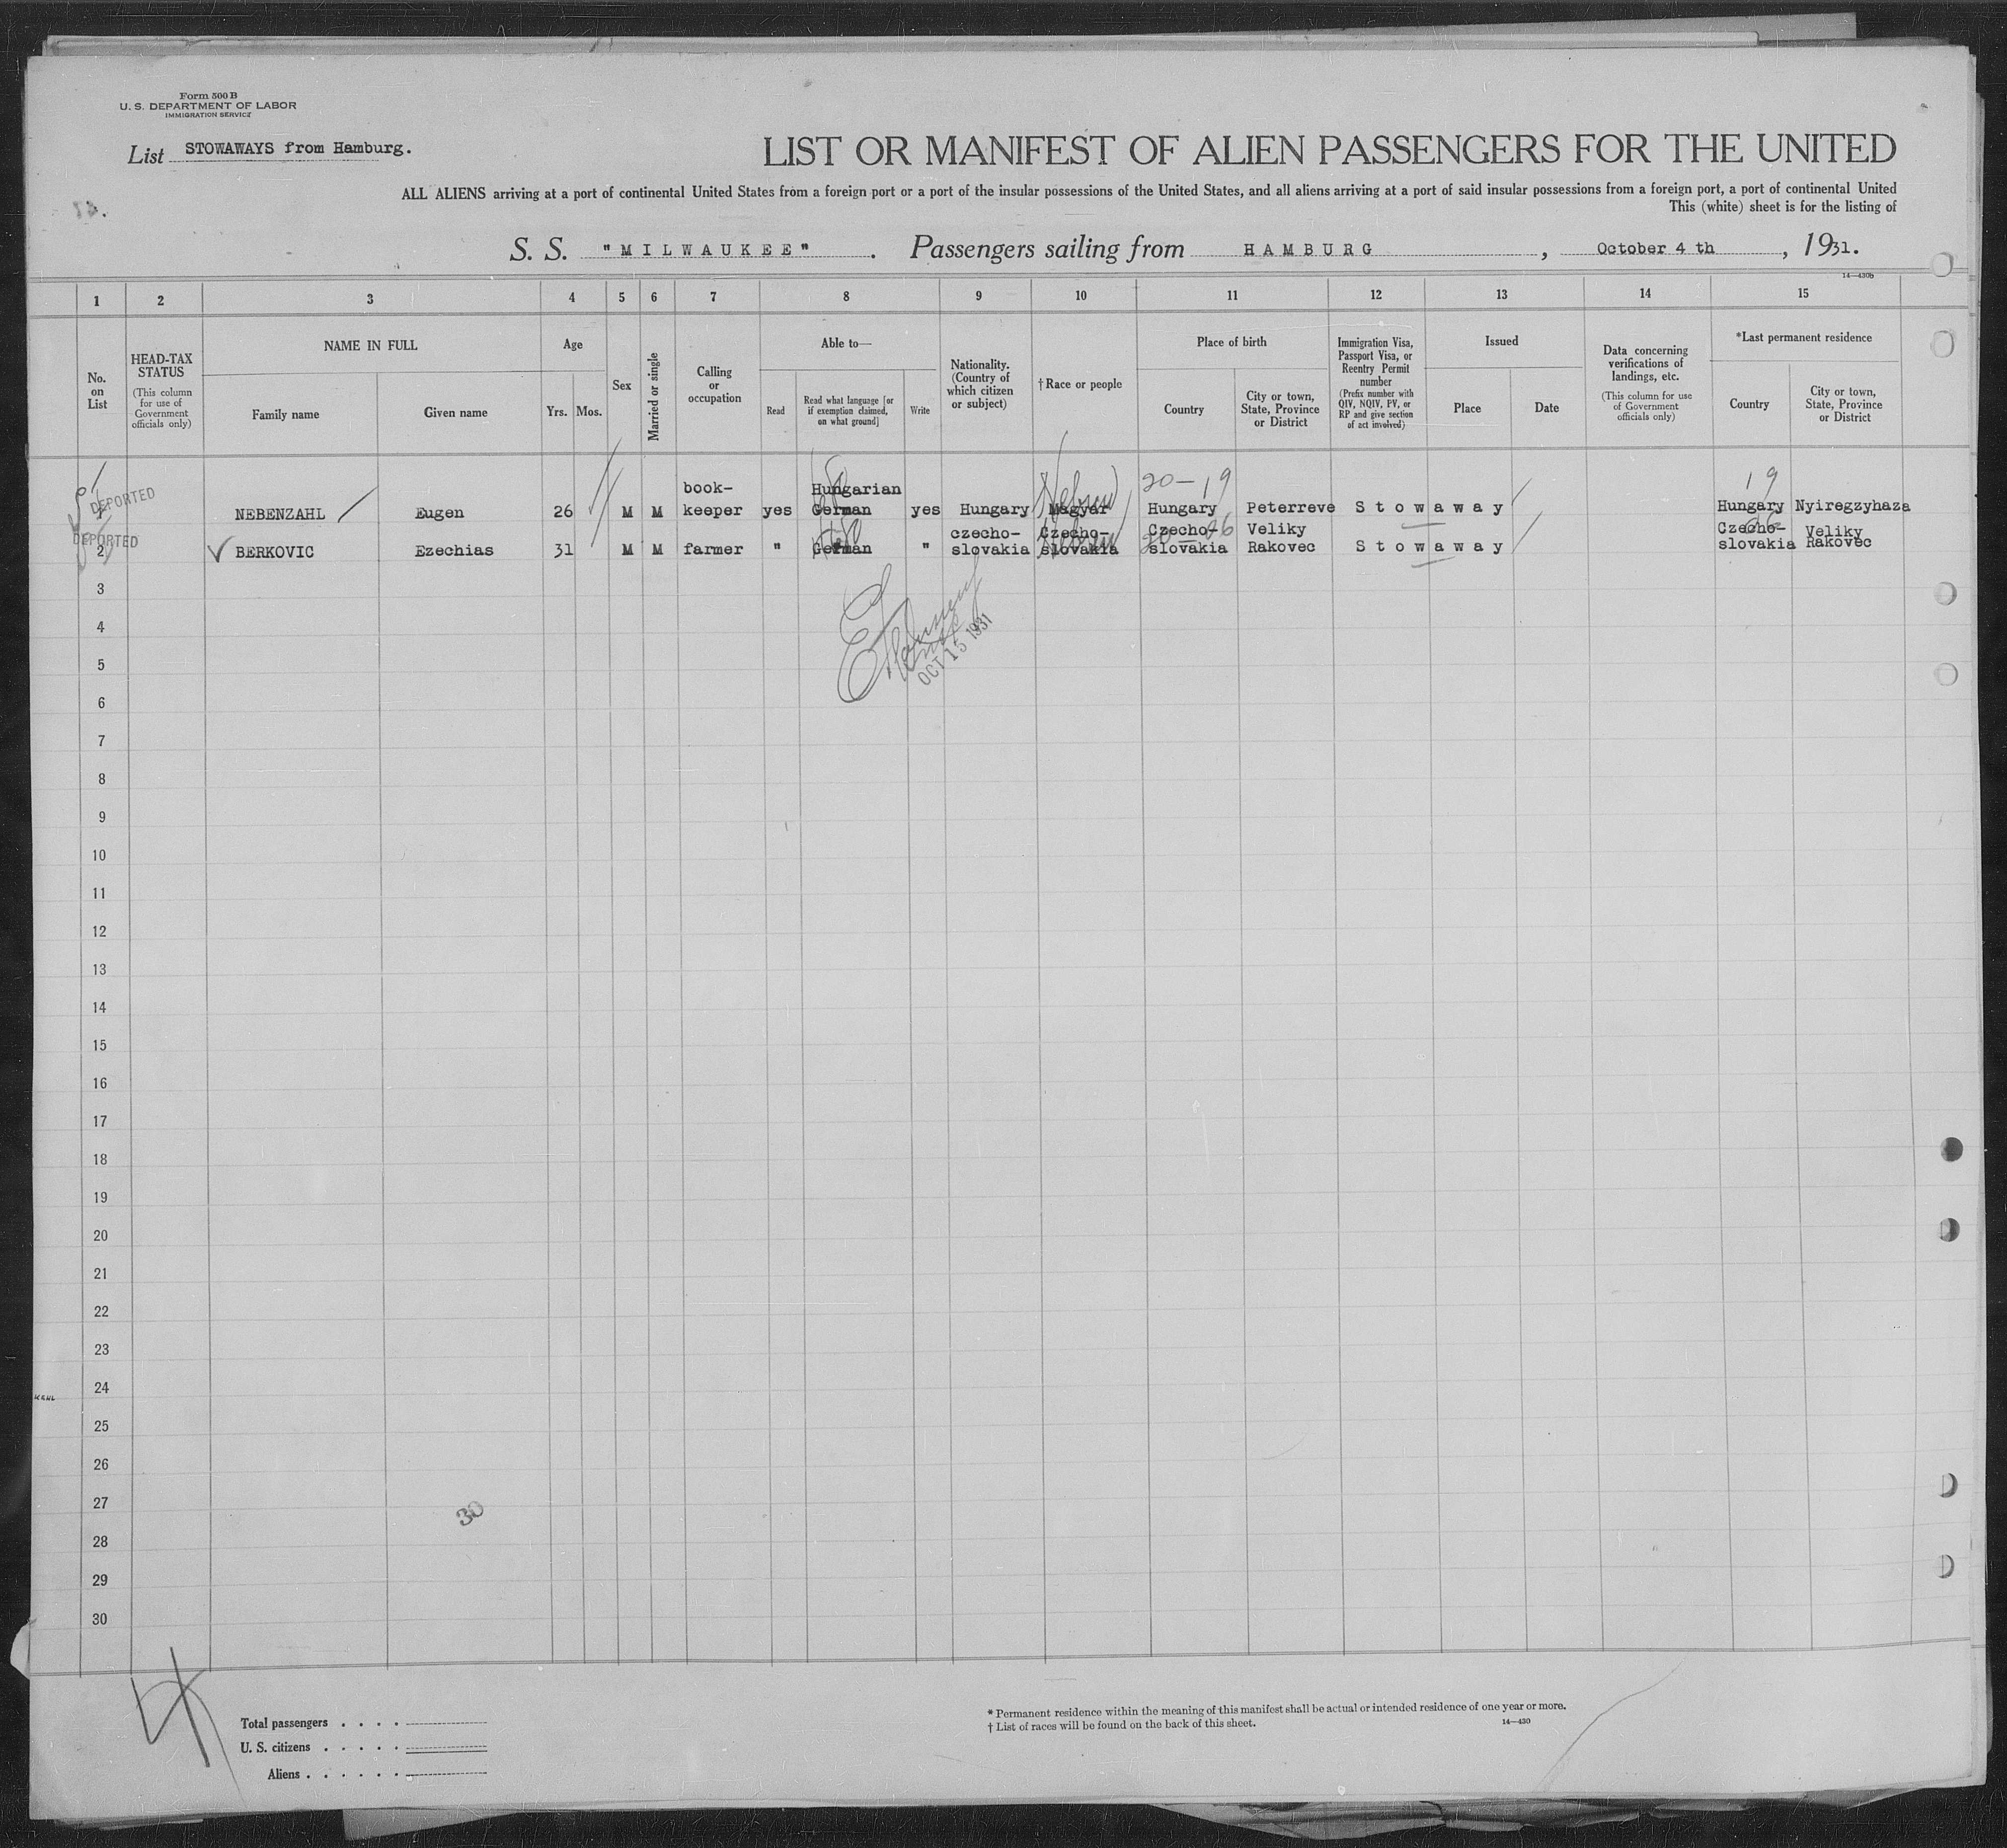 Form 500 B
U. S. DEPARTMENT OF LABOR
IMMIGRATION SERVICE
List STOWAWAYS from Hamburg.
LIST OR MANIFEST OF ALIEN PASSENGERS FOR THE UNITED
ALL ALIENS arriving at a port of continental United States from a foreign port or a port of the insular possessions of the United States, and all aliens arriving at a port of said insular possessions from a foreign port, a port of continental United
This (white) sheet is for the listing of
S. S. "MILWAUKEE". Passengers sailing from HAMBURG, October 4 th, 1931.
14—430b
1 2 3 4 5 6 7 8 9 10 11 12 13 14 15
No. on List
HEAD-TAX STATUS
(This column for use of Government officials only)
NAME IN FULL
Family name Given name
Age
Yrs. Mos.
Sex
Married or single
Calling or occupation
Able to—
Read
Read what language [or if exemption claimed, on what ground]
Write
Nationality. (Country of which citizen or subject)
†Race or people
Place of birth
Country
City or town, State, Province or District
Immigration Visa, Passport Visa, or Reentry Permit number
(Prefix number with QIV, NQIV, PV, or RP and give section of act involved)
Issued
Place Date
Data concerning verifications of landings, etc.
(This column for use of Government officials only)
*Last permanent residence
Country
City or town, State, Province or District
20-19 19
DEPORTED
1 NEBENZAHL Eugen 26 M M book-keeper yes Hungarian German yes Hungary Magyar Hebrew Hungary Peterreve Stowaway Hungary Nyiregzyhaza
DEPORTED
2 BERKOVIC Ezechias 31 M M farmer " German " czecho-slovakia Czecho-slovakia Hebrew Czecho-slovakia Veliky Rakovec Stowaway Czecho-slovakia Veliky Rakovec
3
4
OCT 15 1931
5
6
7
8
9
10
11
12
13
14
15
16
17
18
19
20
21
22
23
24
25
26
27
30
28
29
30
Total passengers . . . .
U. S. citizens . . . . .
Aliens . . . . . .
* Permanent residence within the meaning of this manifest shall be actual or intended residence of one year or more.
† List of races will be found on the back of this sheet.
14—430